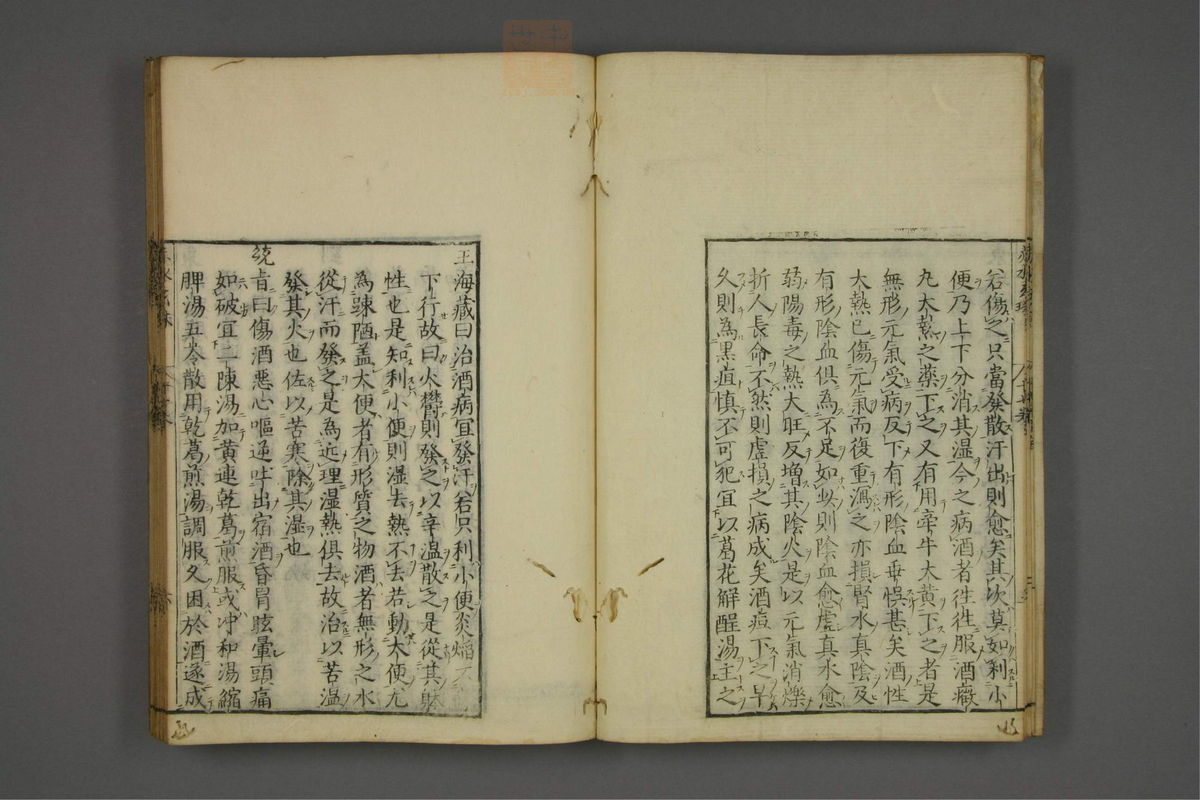 若傷之只當發散汗出則愈矣其次莫如利小
便乃上下分消其湿今之病酒者徃徃服酒癥
丸大熱之藥下之又有用牽牛大黃下之者是
無形元氣受病反下有形陰血乖悞甚矣酒性
大熱已傷元氣而復重瀉之亦損腎水真陰及
有形陰血俱為不足如此則陰血愈虛真水愈
弱陽毒之熱大旺反增其陰火是以元氣消爍
折人長命不然則虛損之病成矣酒疸下之早
久則為黑疸慎不可犯宜以葛花解酲湯主之
王海藏曰治酒病宜發汗若只利小便炎焰不
下行故曰火欝則發之以辛温散之是從其躰
性也是知利小便則湿去熱不去若動大便尤
為踈陋盖大便者有形質之物酒者無形之水
從汗而發之是為近理湿熱俱去故治以苦温
發其火也佐以苦寒除其湿也
統旨曰傷酒惡心嘔逆吐出宿酒昏冒眩暈頭痛
如破宜二陳湯加黄連乾葛煎服或冲和湯縮
脾湯五苓散用乾葛煎湯調服久困於酒遂成